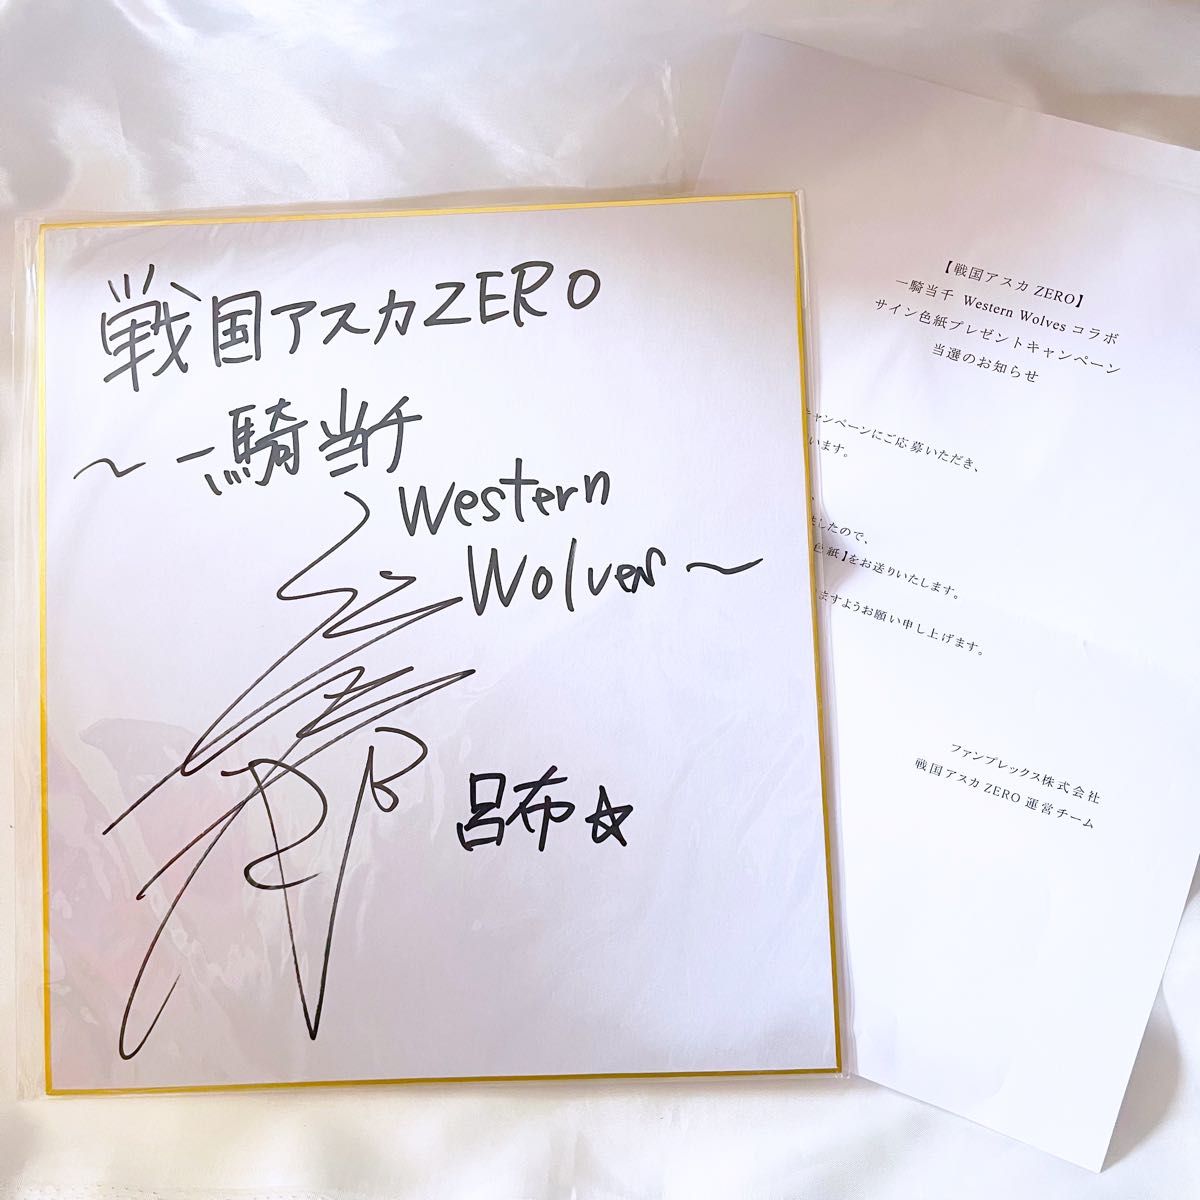 戦国アスカZERO
～一騎当千
Western
Wolves～
呂布☆
【戦国アスカ ZERO】
一騎当千 Western Wolves コラボ
サイン色紙プレゼントキャンペーン
当選のお知らせ
キャンペーンにご応募いただき、
います。
、
ましたので、
色紙】をお送りいたします。
ますようお願い申し上げます。
ファンプレックス株式会社
戦国アスカ ZERO 運営チーム